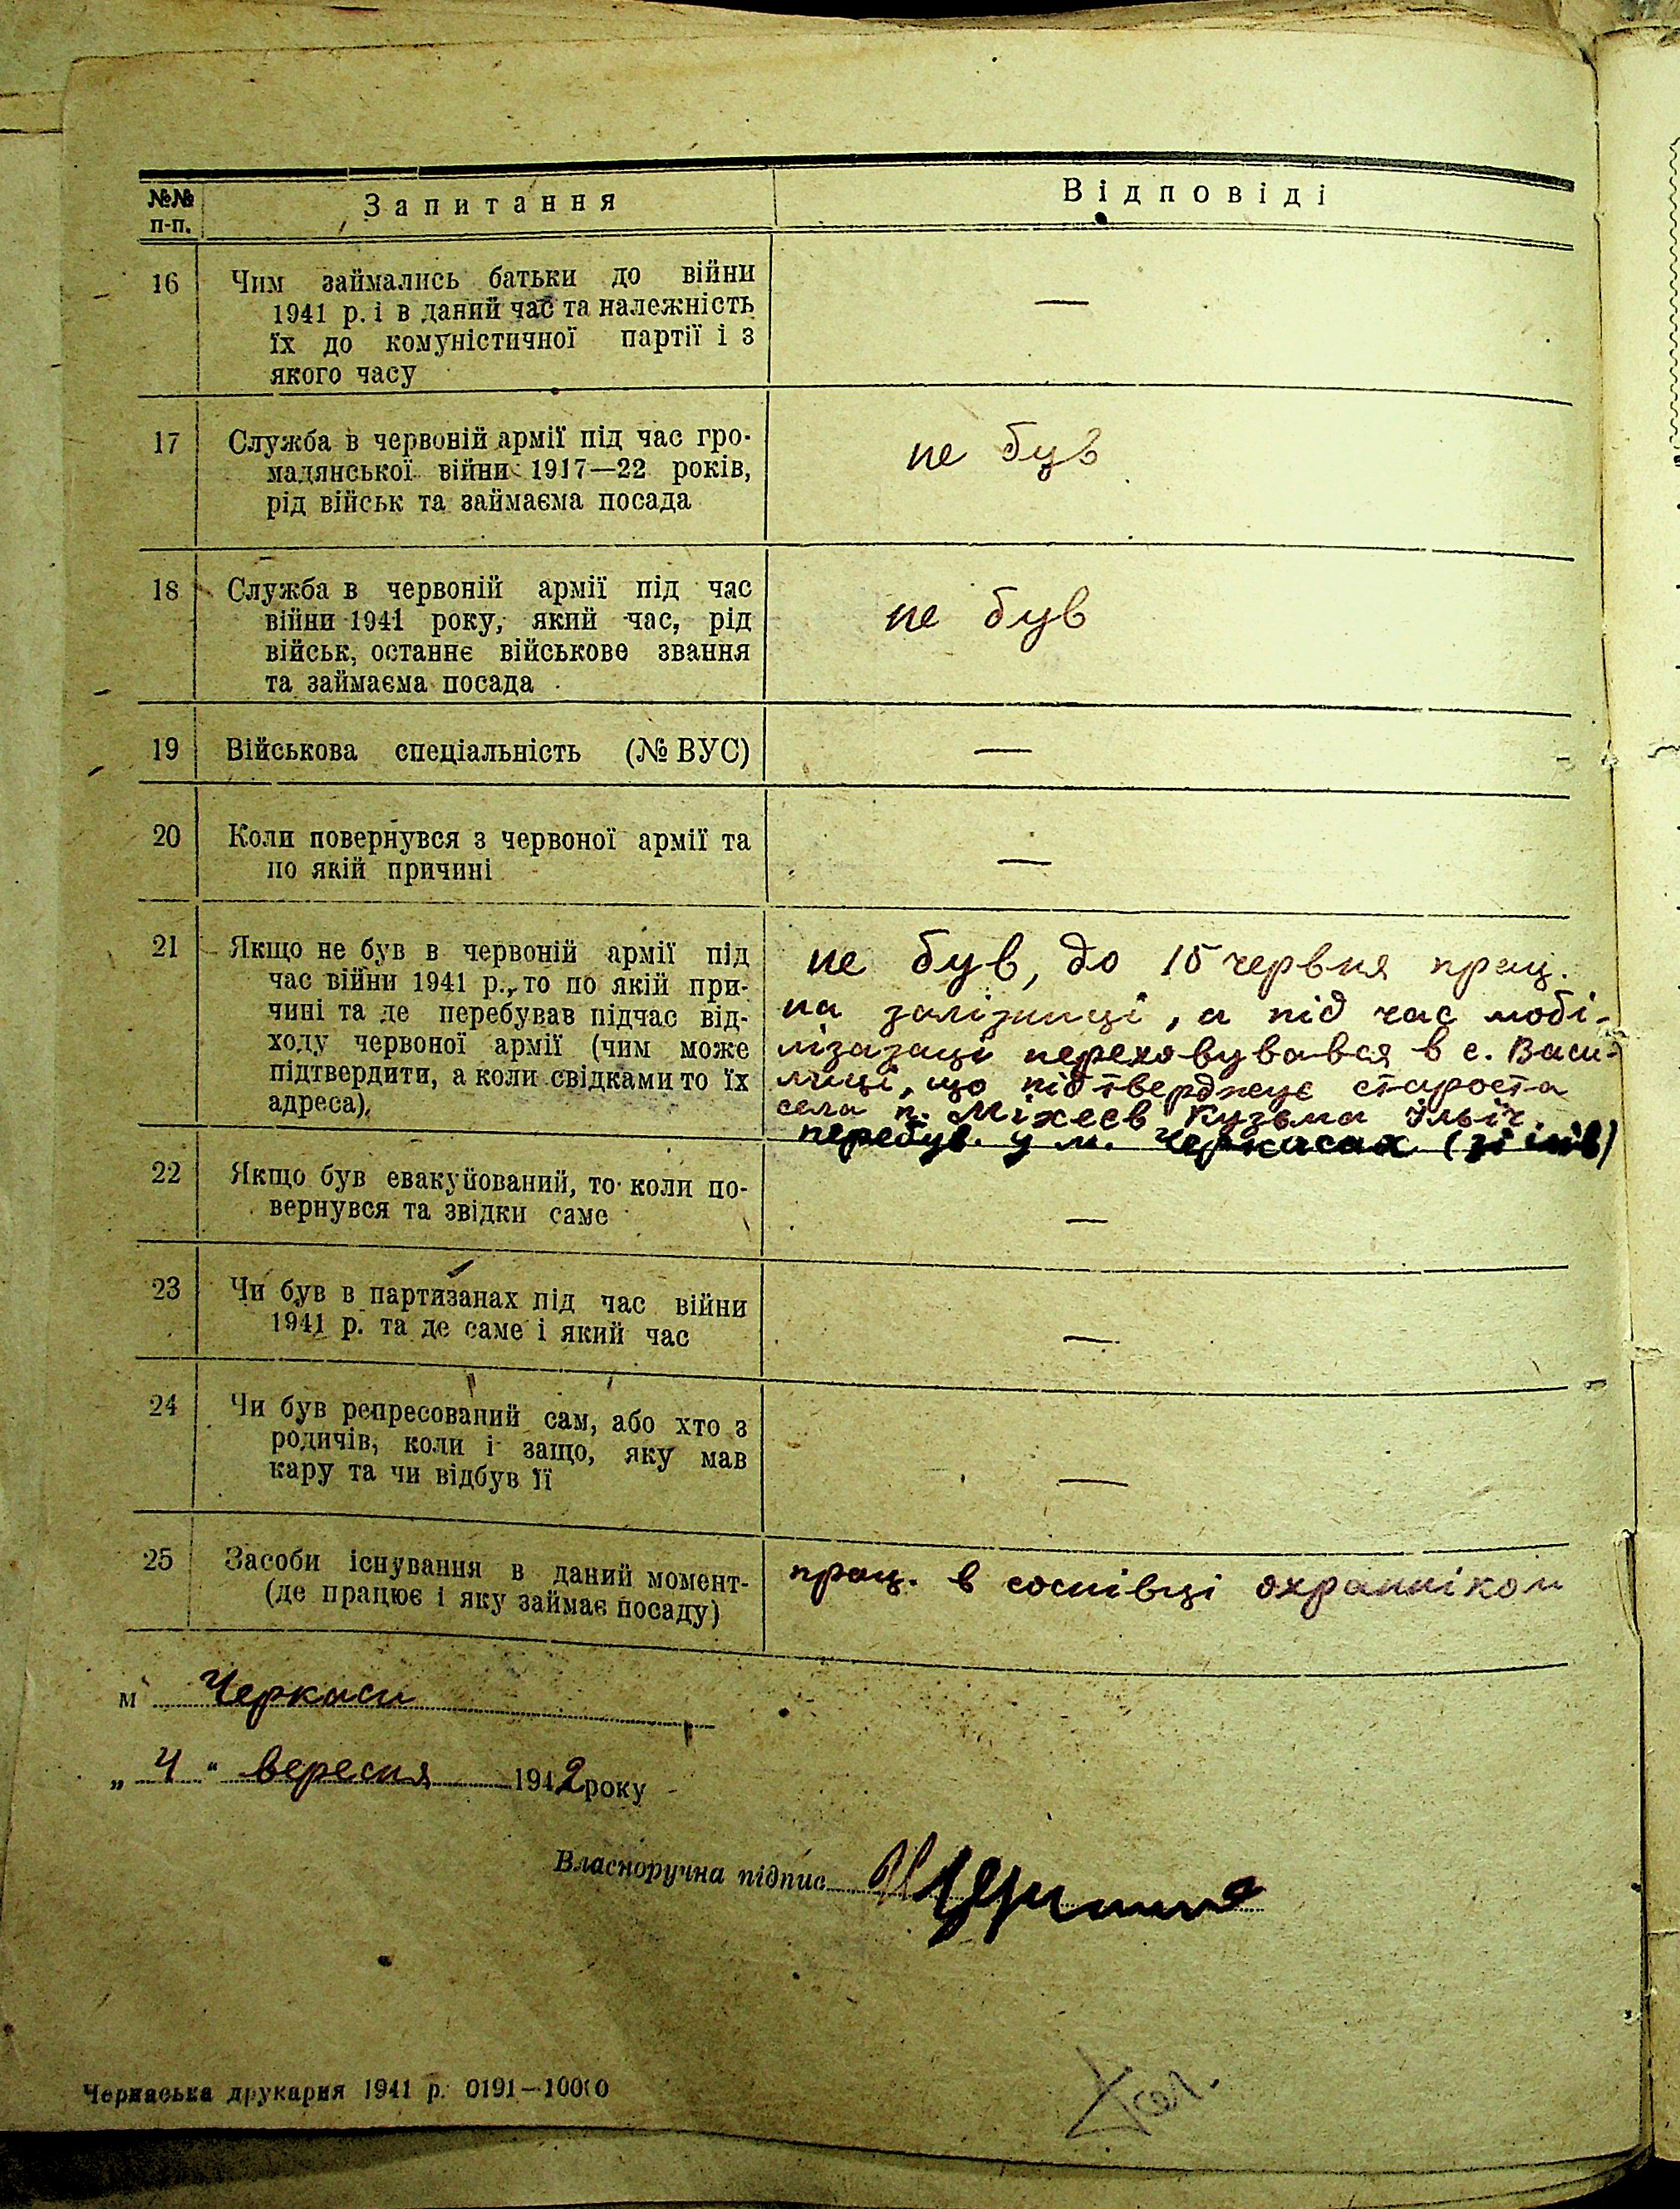 №№ п-п.
Запитання
Відповіді
16
Чим займались батьки до війни
1941 р. і в даний час та належність
їх до комуністичної партії і з
якого часу
—
17
Служба в червоній армії під час гро-
мадянської війни 1917—22 років,
рід військ та займаєма посада
не був
18
Служба в червоній армії під час
війни 1941 року, який час, рід
військ, останнє військове звання
та займаєма посада
не був
19
Військова спеціальність (№ ВУС)
—
20
Коли повернувся з червоної армії та
по якій причині
—
21
Якщо не був в червоній армії під
час війни 1941 р., то по якій при-
чині та де перебував підчас від-
ходу червоної армії (чим може
підтвердити, а коли свідками то їх
адреса),
не був, до 15 червня прац.
на залізниці, а під час мобі-
лізазаці переховувався в с. Васи-
лиці, що підтверджує староста
села п. Міхеєв Кузьма Ільіч
перебув. у м. Черкасах
22
Якщо був евакуйований, то коли по-
вернувся та звідки саме
—
23
Чи був в партизанах під час війни
1941 р. та де саме і який час
—
24
Чи був репресований сам, або хто з
родичів, коли і защо, яку мав
кару та чи відбув її
—
25
Засоби існування в даний момент-
(де працює і яку займає посаду)
прац. в соснівці охранніком
м Черкаси
„ 4 “ вересня 1942 року
Власноручна підпис
Черкаська друкарня 1941 р. 0191—10000